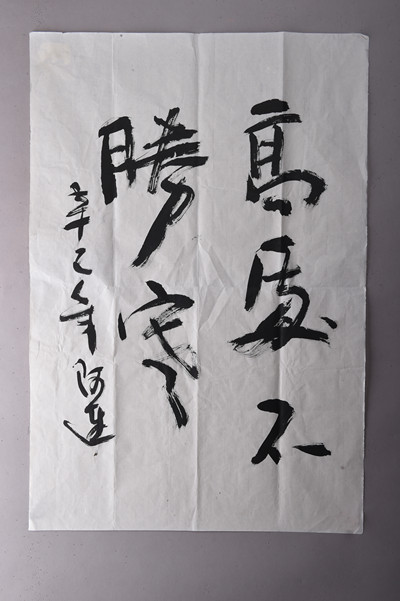 高處不
勝寒
辛巳年 阿蓮